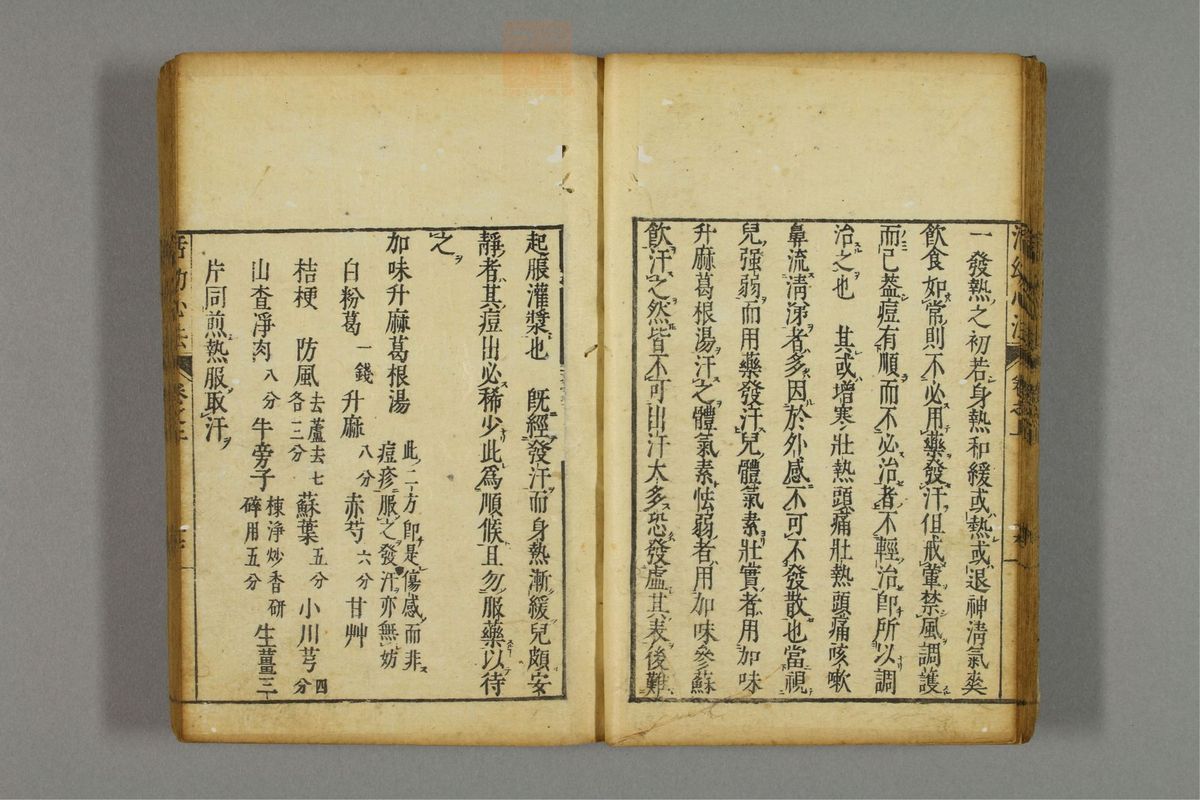 一發熱之初若身熱和緩或熱或退神清氣爽
飲食如常則不必用藥發汗但戒葷禁風調護
而已葢痘有順而不必治者不輕治卽所以調
治之也　其或增寒壯熱頭痛壯熱頭痛咳嗽
鼻流清涕者多因於外感不可不發散也當視
兒强弱而用藥發汗兒體氣素壯實者用加味
升麻葛根湯汗之體氣素怯弱者用加味參蘇
飲汗之然皆不可出汗太多恐發虛其表後難
起脹灌漿也　旣經發汗而身熱漸緩兒頗安
靜者其痘出必稀少此爲順候且勿服藥以待
之
加味升麻葛根湯　此二方卽是傷感而非
痘疹服之發汗亦無妨
白粉葛一錢　升麻八分　赤芍六分　甘艸
桔梗　防風去蘆去七各三分　蘇葉五分　小川芎四分
山査淨肉八分　牛旁子棟淨炒香研碎用五分　生薑三
片同煎熱服取汗
活幼心法